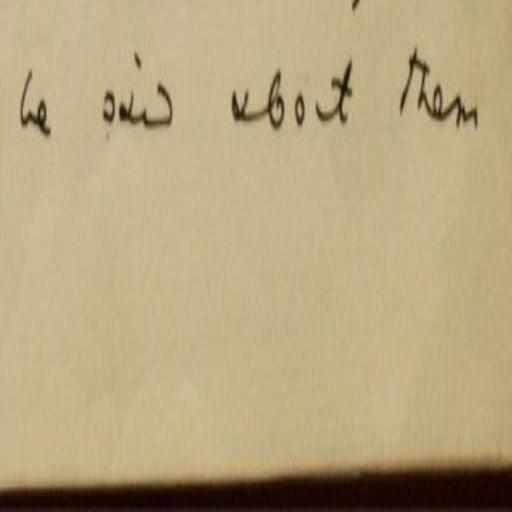 he said about them